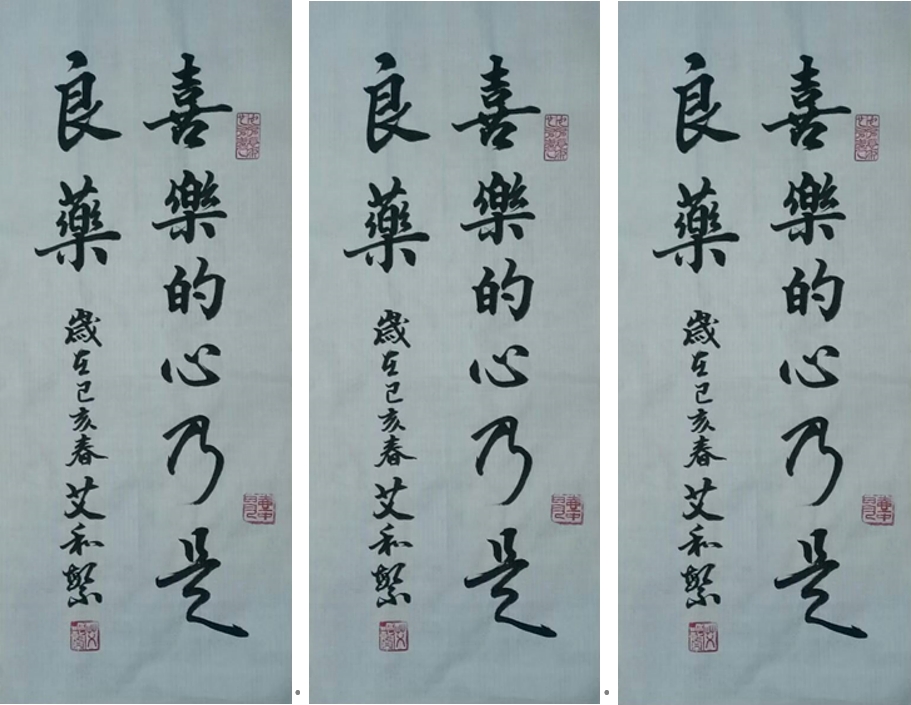 喜樂的心乃是
良藥 歲在己亥春艾和
喜樂的心乃是
良藥 歲在己亥春艾和
喜樂的心乃是
良藥 歲在己亥春艾和